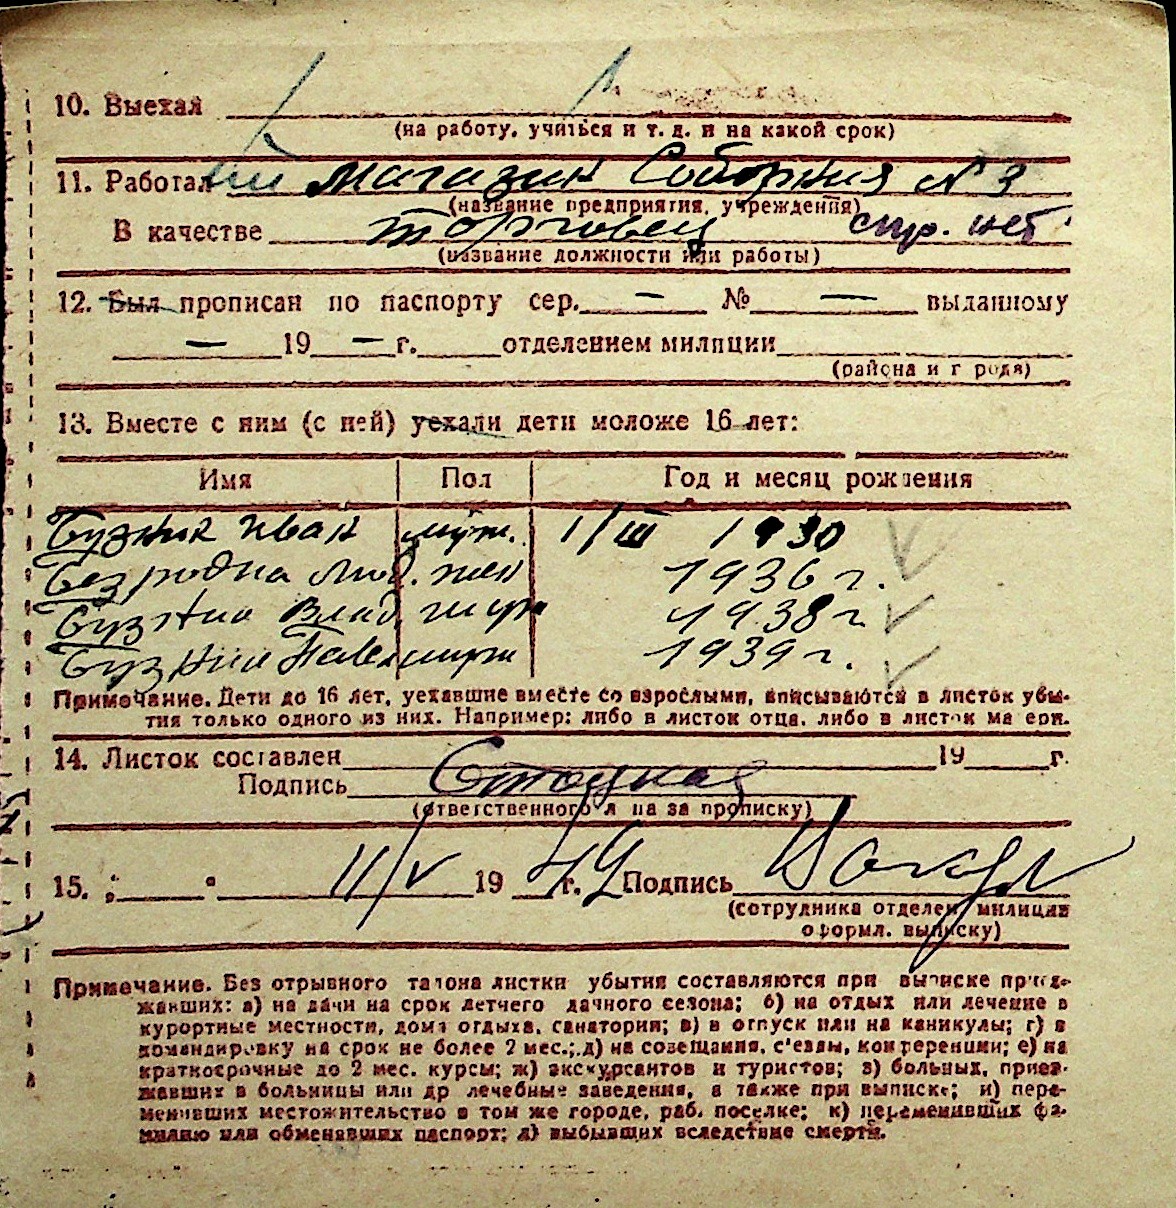 10. Выехал
(на работу, учиться и т. д. и на какой срок)
11. Работал магазин Соборная № 3
(название предприятия, учреждения)
В качестве торговец спр. нет
(название должности или работы)
12. Был прописан по паспорту сер. — № — выданному
— 19 — г. отделением милиции
(района и города)
13. Вместе с ним (с ней) уехали дети моложе 16 лет:
Имя Пол Год и месяц рождения
Бузник Иван муж. 1/III 1930
Безродна Люд. жен 1936 г.
Влад. муж 1938 г.
Павел муж 1939 г.
Примечание. Дети до 16 лет, уехавшие вместе со взрослыми, вписываются в листок убы-
тия только одного из них. Например: либо в листок отца, либо в листок матери.
14. Листок составлен 19 г.
Подпись
(ответственного лица за прописку)
15. 11/V 19 г. Подпись
(сотрудника отделен. милиции
оформл. выписку)
Примечание. Без отрывного талона листки убытия составляются при выписке приез-
жавших: а) на дачи на срок летнего дачного сезона; б) на отдых или лечение в
курортные местности, дома отдыха, санатории; в) в отпуск или на каникулы; г) в
командировку на срок не более 2 мес.; д) на совещания, с'езды, конференции; е) на
краткосрочные до 2 мес. курсы; ж) экскурсантов и туристов; з) больных, приез-
жавших в больницы или др лечебные заведения, а также при выписке; и) пере-
менивших местожительство в том же городе, раб. поселке; к) переменивших фа-
милию или обменявших паспорт; л) выбывших вследствие смерти.